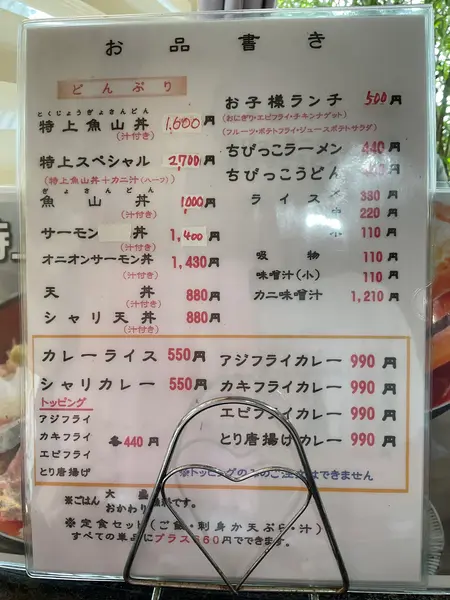 お品書き
どんぶり
とくじょうぎょさんどん
特上魚山丼 1,600円
(汁付き)
特上スペシャル 2,700円
(特上魚山丼+カニ汁(ハーフ))
ぎょさんどん
魚山丼 1,000円
(汁付き)
サーモン丼 1,400円
(汁付き)
オニオンサーモン丼 1,430円
(汁付き)
天丼 880円
(汁付き)
シャリ天丼 880円
(汁付き)
お子様ランチ 500円
(おにぎり・エビフライ・チキンナゲット)
(フルーツ・ポテトフライ・ジュースポテトサラダ)
ちびっこラーメン 440円
ちびっこうどん 円
ライス 330円
中 220円
小 110円
吸物 110円
味噌汁(小) 110円
カニ味噌汁 1,210円
カレーライス 550円
シャリカレー 550円
トッピング
アジフライ
カキフライ
エビフライ
とり唐揚げ
各440円
アジフライカレー 990円
カキフライカレー 990円
エビフライカレー 990円
とり唐揚げカレー 990円
※トッピングのみのご注文はできません
※ごはん 大盛 おかわり です。
※定食セット(ご飯・刺身か天ぷら・汁)
すべての単品にプラス660円でできます。